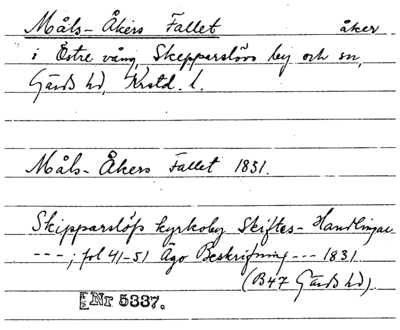 Måls-Åkers Fallet åker
i Östre vång, Skepparslövs by och sn,
Gärds hd, Krstd. l.
Måls-Åkers Fallet 1831.
Skipparslöfs kyrkoby Skiftes-Handlingar
---; fol 41-51 Ägo Beskrifning --- 1831
(B47 Gärds hd).
Nr 5337.